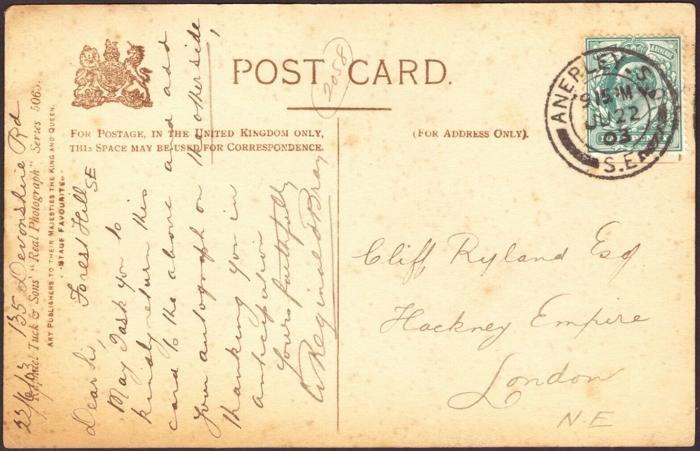 POST CARD.
2058
FOR POSTAGE, IN THE UNITED KINGDOM ONLY,
THIS SPACE MAY BE USED FOR CORRESPONDENCE.
(FOR ADDRESS ONLY).
ANERLEY S.O.
9.15 PM
JU 22
03
S.E.
Raphael Tuck & Sons' "Real Photograph" Series 5065.
"STAGE FAVOURITES."
ART PUBLISHERS TO THEIR MAJESTIES THE KING AND QUEEN.
22/6/03 135 Devonshire Rd
Forest Hill
SE
Dear Sir,
May I ask you to
kindly return this
card to the above and add
your autograph on the other side,
thanking you in
anticipation
Yours faithfully
W Reginald Bray
Cliff Ryland Esq
Hackney Empire
London
N.E